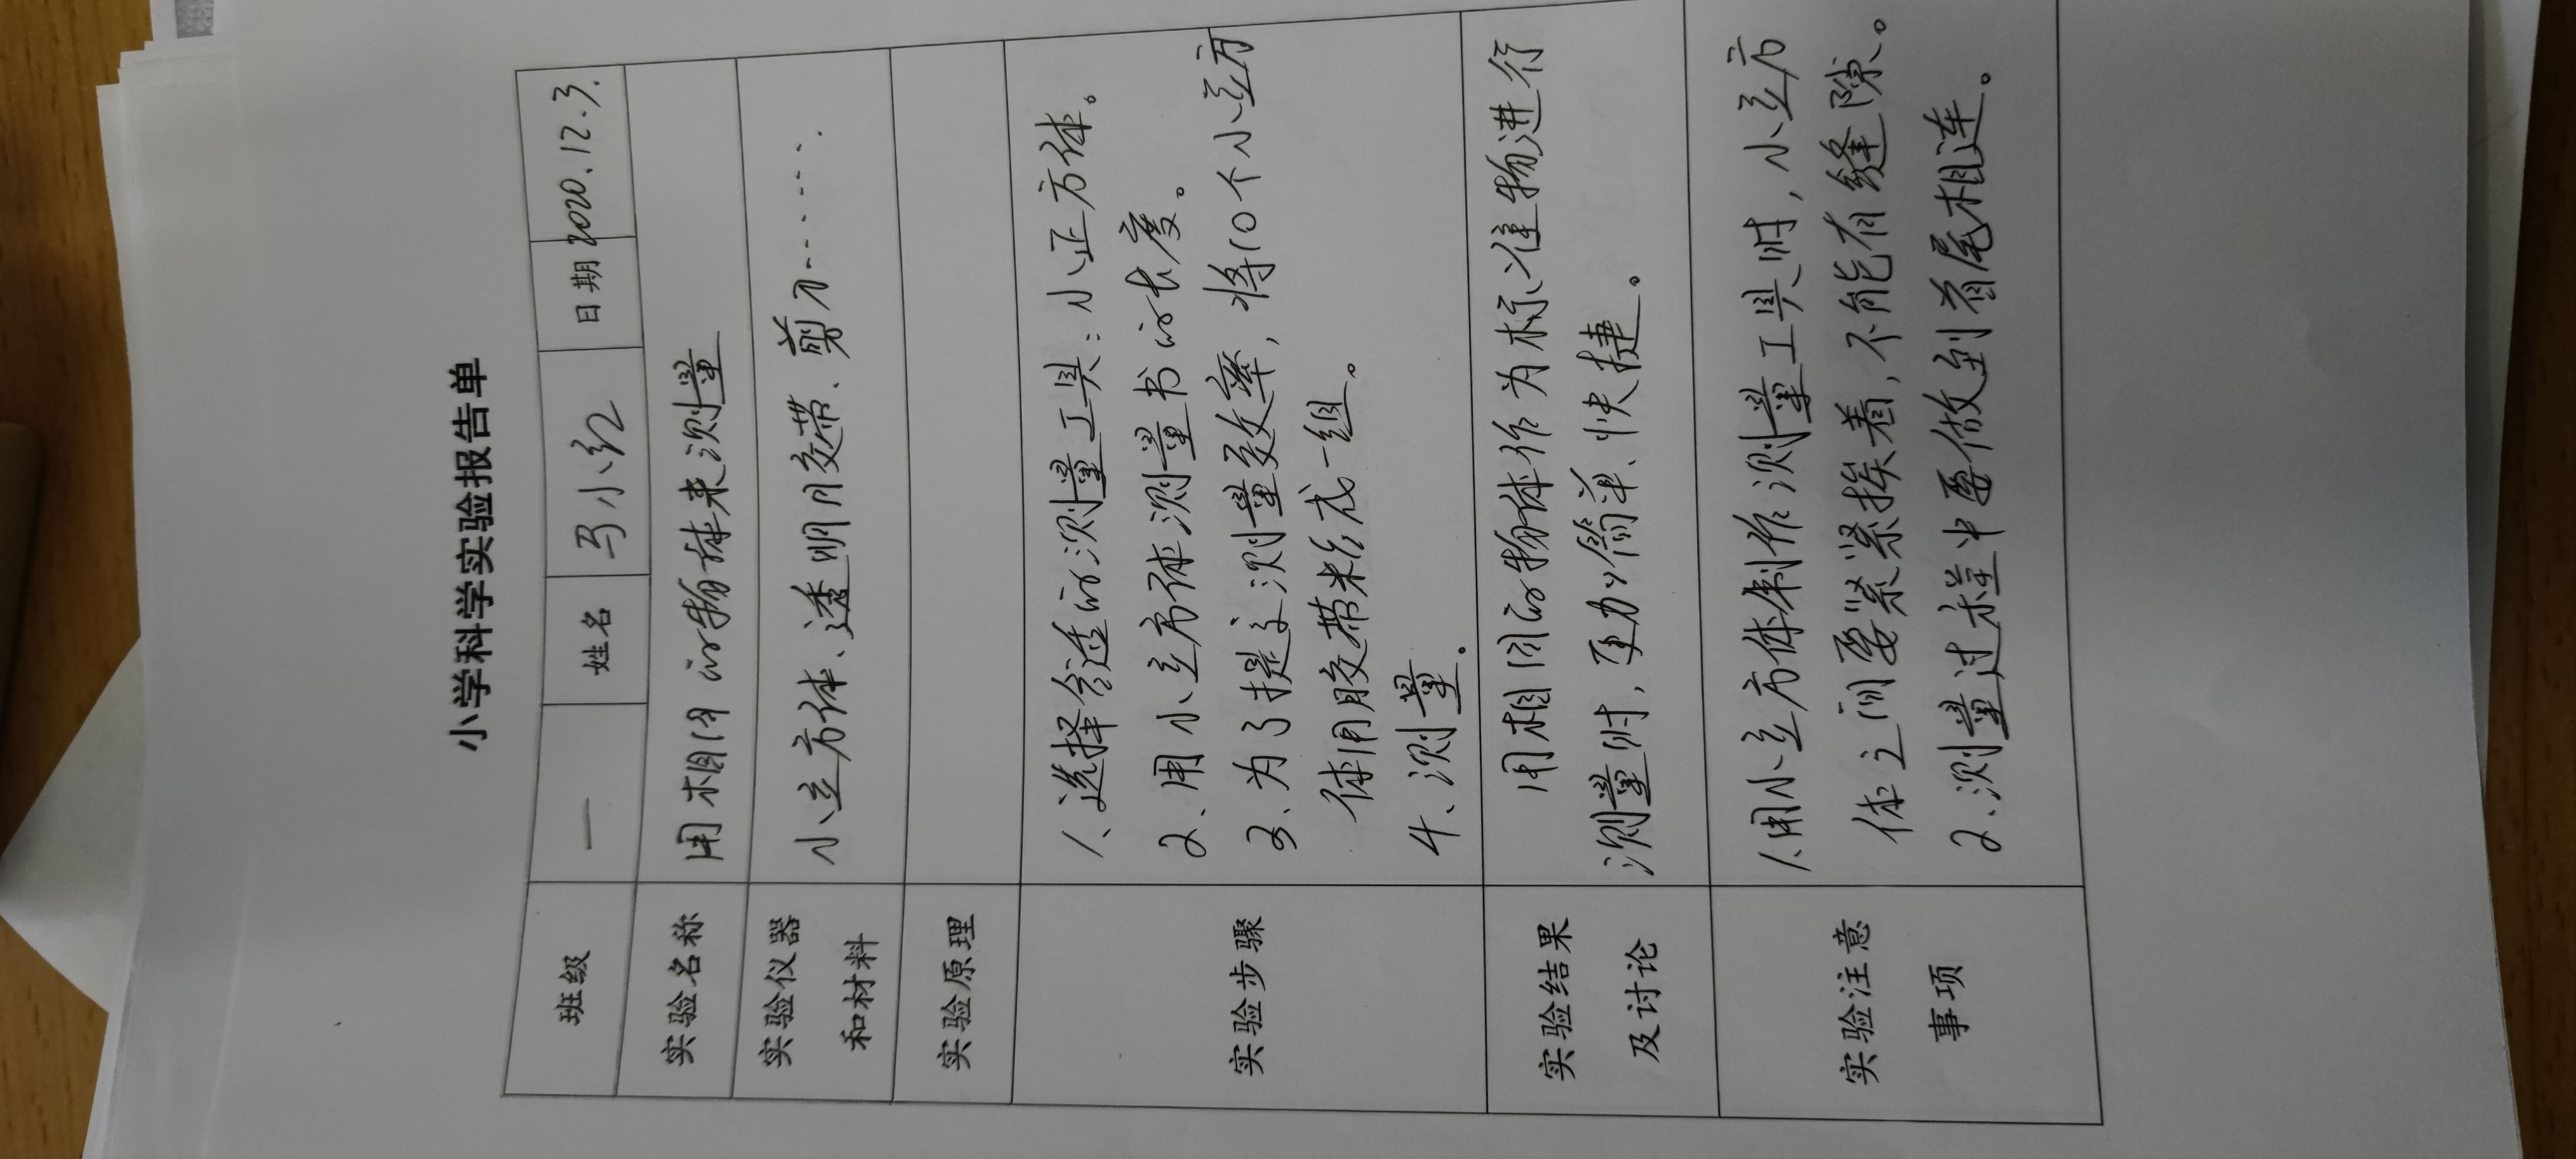 小学科学实验报告单
班级 一 姓名 马小红 日期 2020.12.3.
实验名称 用相同的物体来测量
实验仪器 小立方体、透明胶带、剪刀……
和材料
实验原理
1、选择合适的测量工具：小正方体。
2、用小立方体测量书的长度。
实验步骤 3、为了提高测量效率，将10个小立方
体用胶带粘成一组。
4、测量。
实验结果 用相同的物体作为标准物进行
及讨论 测量时，更加简单、快捷。
1、用小立方体制作测量工具时，小立方
实验注意 体之间要紧紧挨着，不能有缝隙。
事项 2、测量过程中要做到首尾相连。